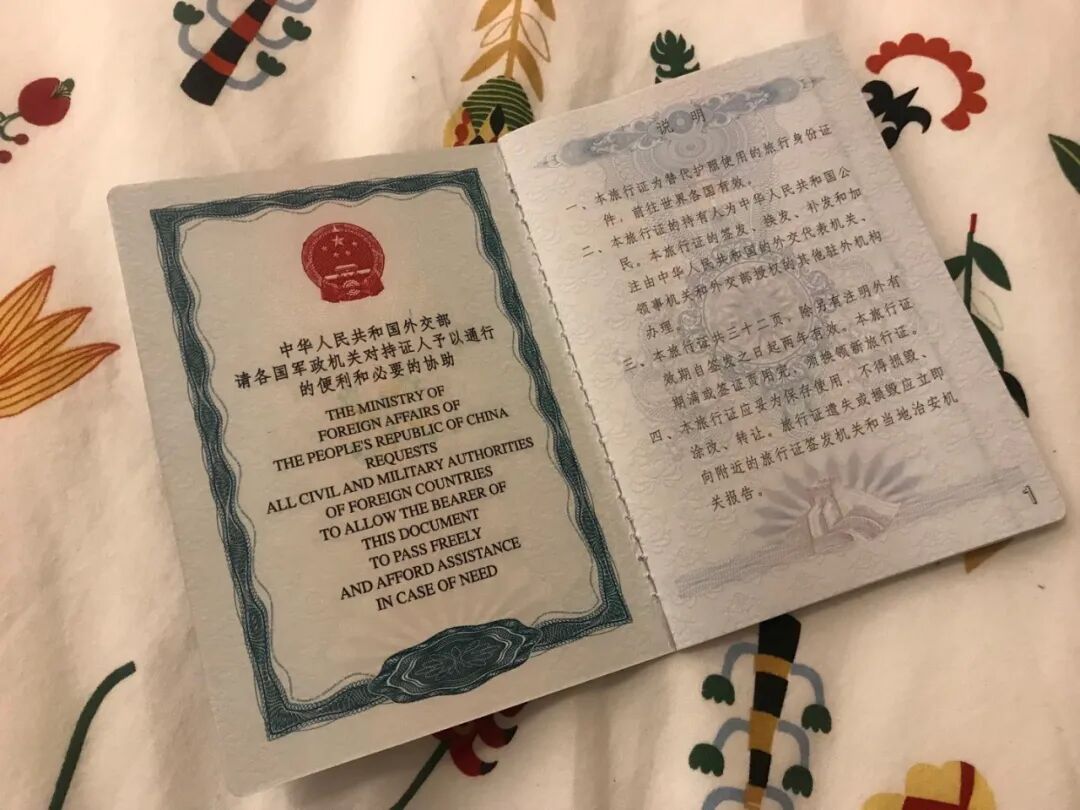 中华人民共和国外交部
请各国军政机关对持证人予以通行
的便利和必要的协助
THE MINISTRY OF
FOREIGN AFFAIRS OF
THE PEOPLE'S REPUBLIC OF CHINA
REQUESTS
ALL CIVIL AND MILITARY AUTHORITIES
OF FOREIGN COUNTRIES
TO ALLOW THE BEARER OF
THIS DOCUMENT
TO PASS FREELY
AND AFFORD ASSISTANCE
IN CASE OF NEED
说 明
一、本旅行证为替代护照使用的旅行身份证
件，前往世界各国有效。
二、本旅行证的持有人为中华人民共和国公
民。本旅行证的签发、换发、补发和加
注由中华人民共和国的外交代表机关、
领事机关和外交部授权的其他驻外机构
办理。
三、本旅行证共三十二页，除另有注明外有
效期自签发之日起两年有效。本旅行证
期满或签证页用完，须换领新旅行证。
四、本旅行证应妥为保存使用，不得损毁、
涂改、转让。旅行证遗失或损毁应立即
向附近的旅行证签发机关和当地治安机
关报告。
1